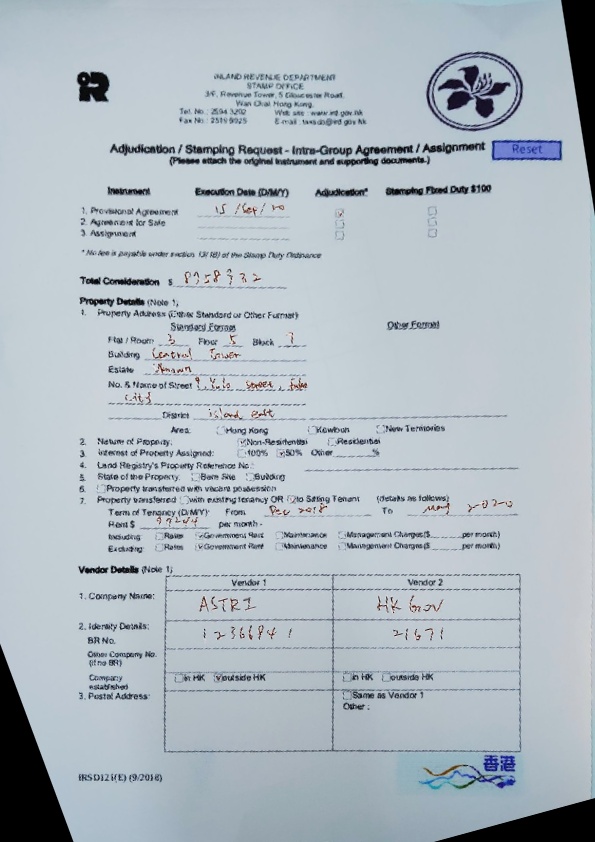 INLAND REVENUE DEPARTMENT
STAMP OFFICE
3/F, Revenue Tower, 5 Gloucester Road,
Wan Chai Hong Kong.
Tel. No.: 2594 3202 Web site : www.ird.gov.hk
Fax No.: 2519 9025 E-mail : taxsdo@ird.gov.hk
Adjudication / Stamping Request - Intra-Group Agreement / Assignment
Reset
(Please attach the original instrument and supporting documents.)
Instrument Execution Date (D/M/Y) Adjudication* Stamping Fixed Duty $100
1. Provisional Agreement 15 /Sep/
2. Agreement for Sale
3. Assignment
* No fee is payable under section 13(1B) of the Stamp Duty Ordinance
Total Consideration $
Property Details (Note 1)
1. Property Address (Either Standard or Other Format)
Standard Format Other Format
Flat / Room 3 Floor 5 Block
Building Central Tower
Estate
No. & Name of Street Street,
City
District island east
Area: Hong Kong Kowloon New Territories
2. Nature of Property: Non-Residential Residential
3. Interest of Property Assigned: 100% 50% Other %
4. Land Registry's Property Reference No.:
5. State of the Property: Bare Site Building
6. Property transferred with vacant possession
7. Property transferred with existing tenancy OR to Sitting Tenant (details as follows)
Term of Tenancy (D/M/Y): From Dec 2018 To may 2020
Rent $ per month -
Including: Rates Government Rent Maintenance Management Charges ($ per month)
Excluding: Rates Government Rent Maintenance Management Charges ($ per month)
Vendor Details (Note 1)
Vendor 1 Vendor 2
1. Company Name: ASTRI HK Gov
2. Identity Details:
BR No. 12366841 21671
Other Company No.
(if no BR)
Company
established
in HK outside HK in HK outside HK
3. Postal Address: Same as Vendor 1
Other :
香港
IRSD121(E) (9/2018)